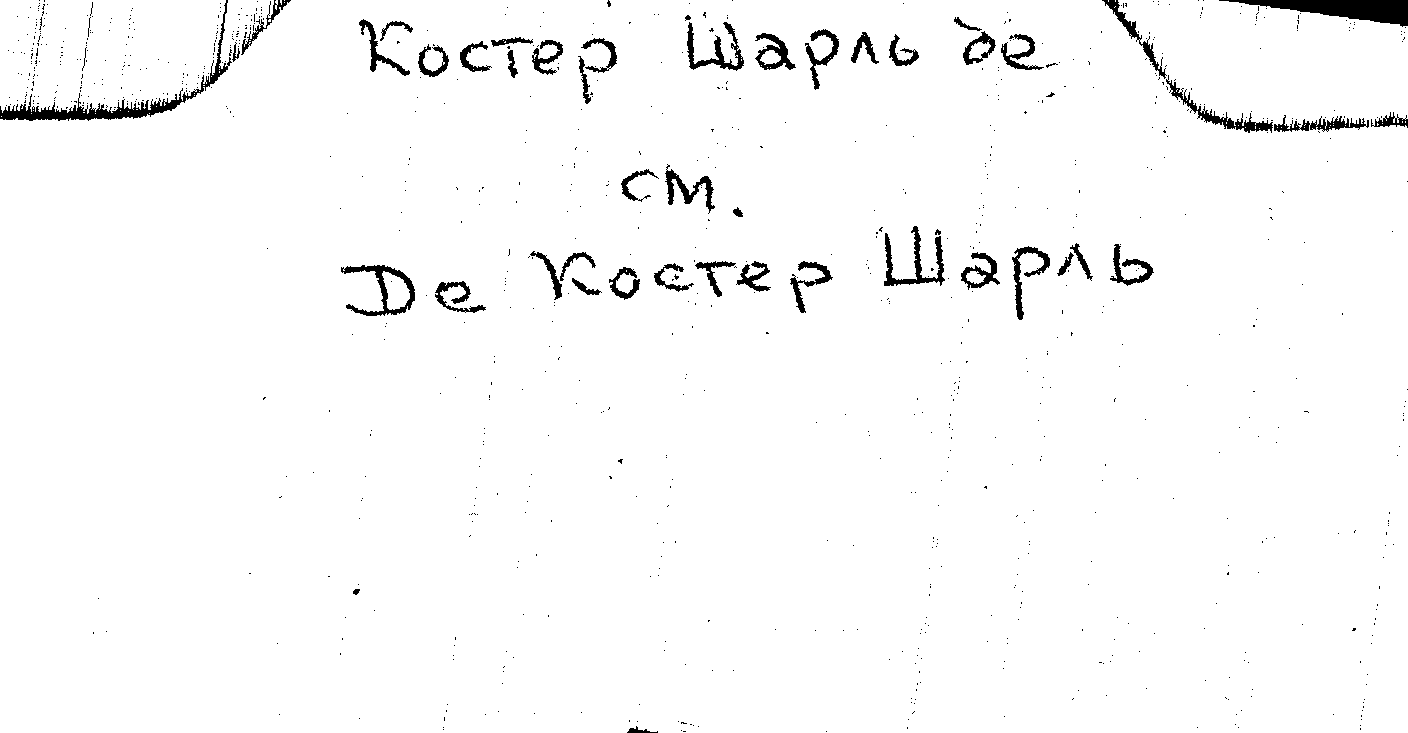 Костер Шарль де
см.
Де Костер Шарль